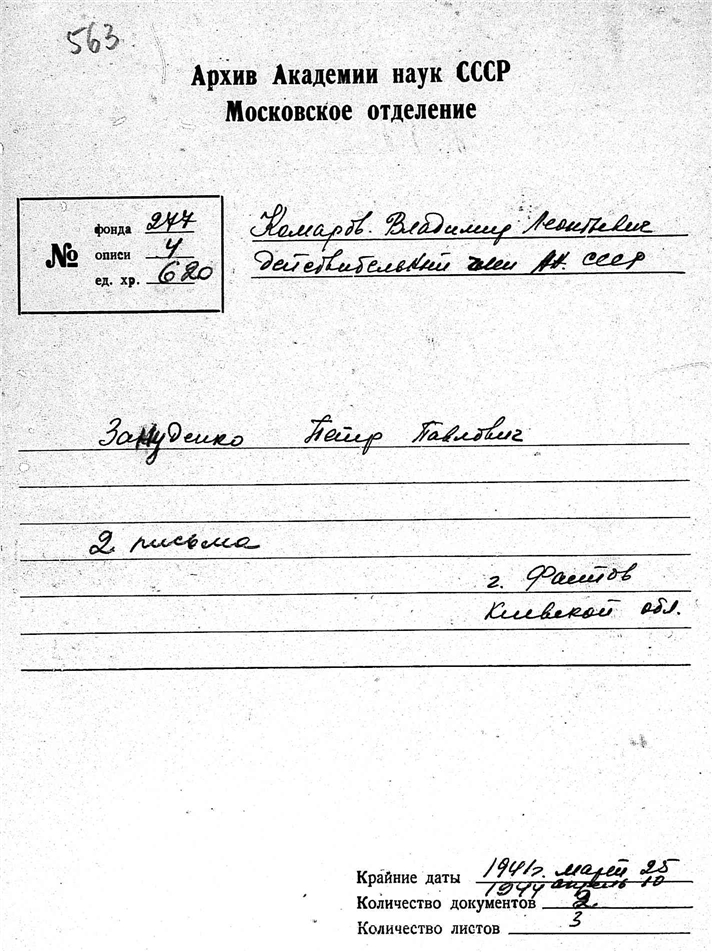 563
Архив Академии наук СССР
Московское отделение
№
фонда 277
описи 4
ед. хр. 620
Комаров Владимир Леонтьевич
Действительный член АН. СССР
Зануденко Петр Павлович
2 письма
г. Фастов
Киевской обл.
Крайние даты 1941г. март 25
1944 апрель 10
Количество документов 2
Количество листов 3